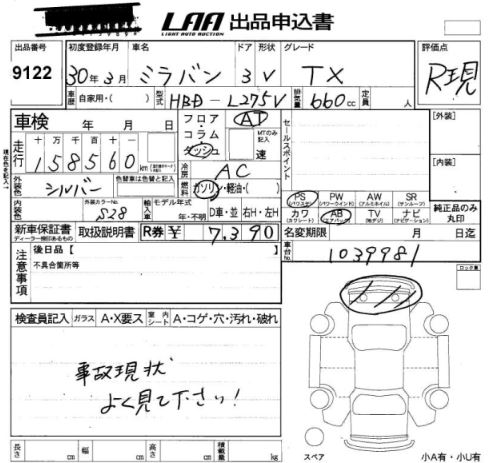 LAA 出品申込書
LIGHT AUTO AUCTION
出品番号 初度登録年月 車名 ドア 形状 グレード 評価点
9122 30年3月 ミラバン 3 V TX R現
車歴 自家用・( ) 型式 HBD-L275V 排気量 660cc 定員 人
車検 年 月 日
フロア・コラム ダッシュ AT MTのみ記入 速
セールスポイント
【外装】
【内装】
現在色を記入
走行 十万千百十一
158560 km
冷房 AC
外装色 シルバー 色替車は色替と記入
燃料 ガソリン・軽油・( )
内装色 外装カラーNo. S28
輸入車 モデル年式 年・不明 D車・並 右H・左H
PS (パワステ) PW (パワーウインド) AW (アルミホイル) SR (サンルーフ)
カワ (カワシート) AB (エアバック) TV (地デジ) ナビ (ナビゲーション)
純正品のみ丸印
新車保証書 ディーラー捺印があるもの 取扱説明書 R券 ¥ 7,390
名変期限 年 月 日迄
注意事項 後日品【 】
不具合箇所等
車台No. 1039981
ロック番
検査員記入 ガラス A・X要ス 室内シート A・コゲ・穴・汚れ・破れ
事故現状
よく見て下さい!
長さ cm 幅 cm 高さ cm 積載量 kg
スペア
小A有・小U有